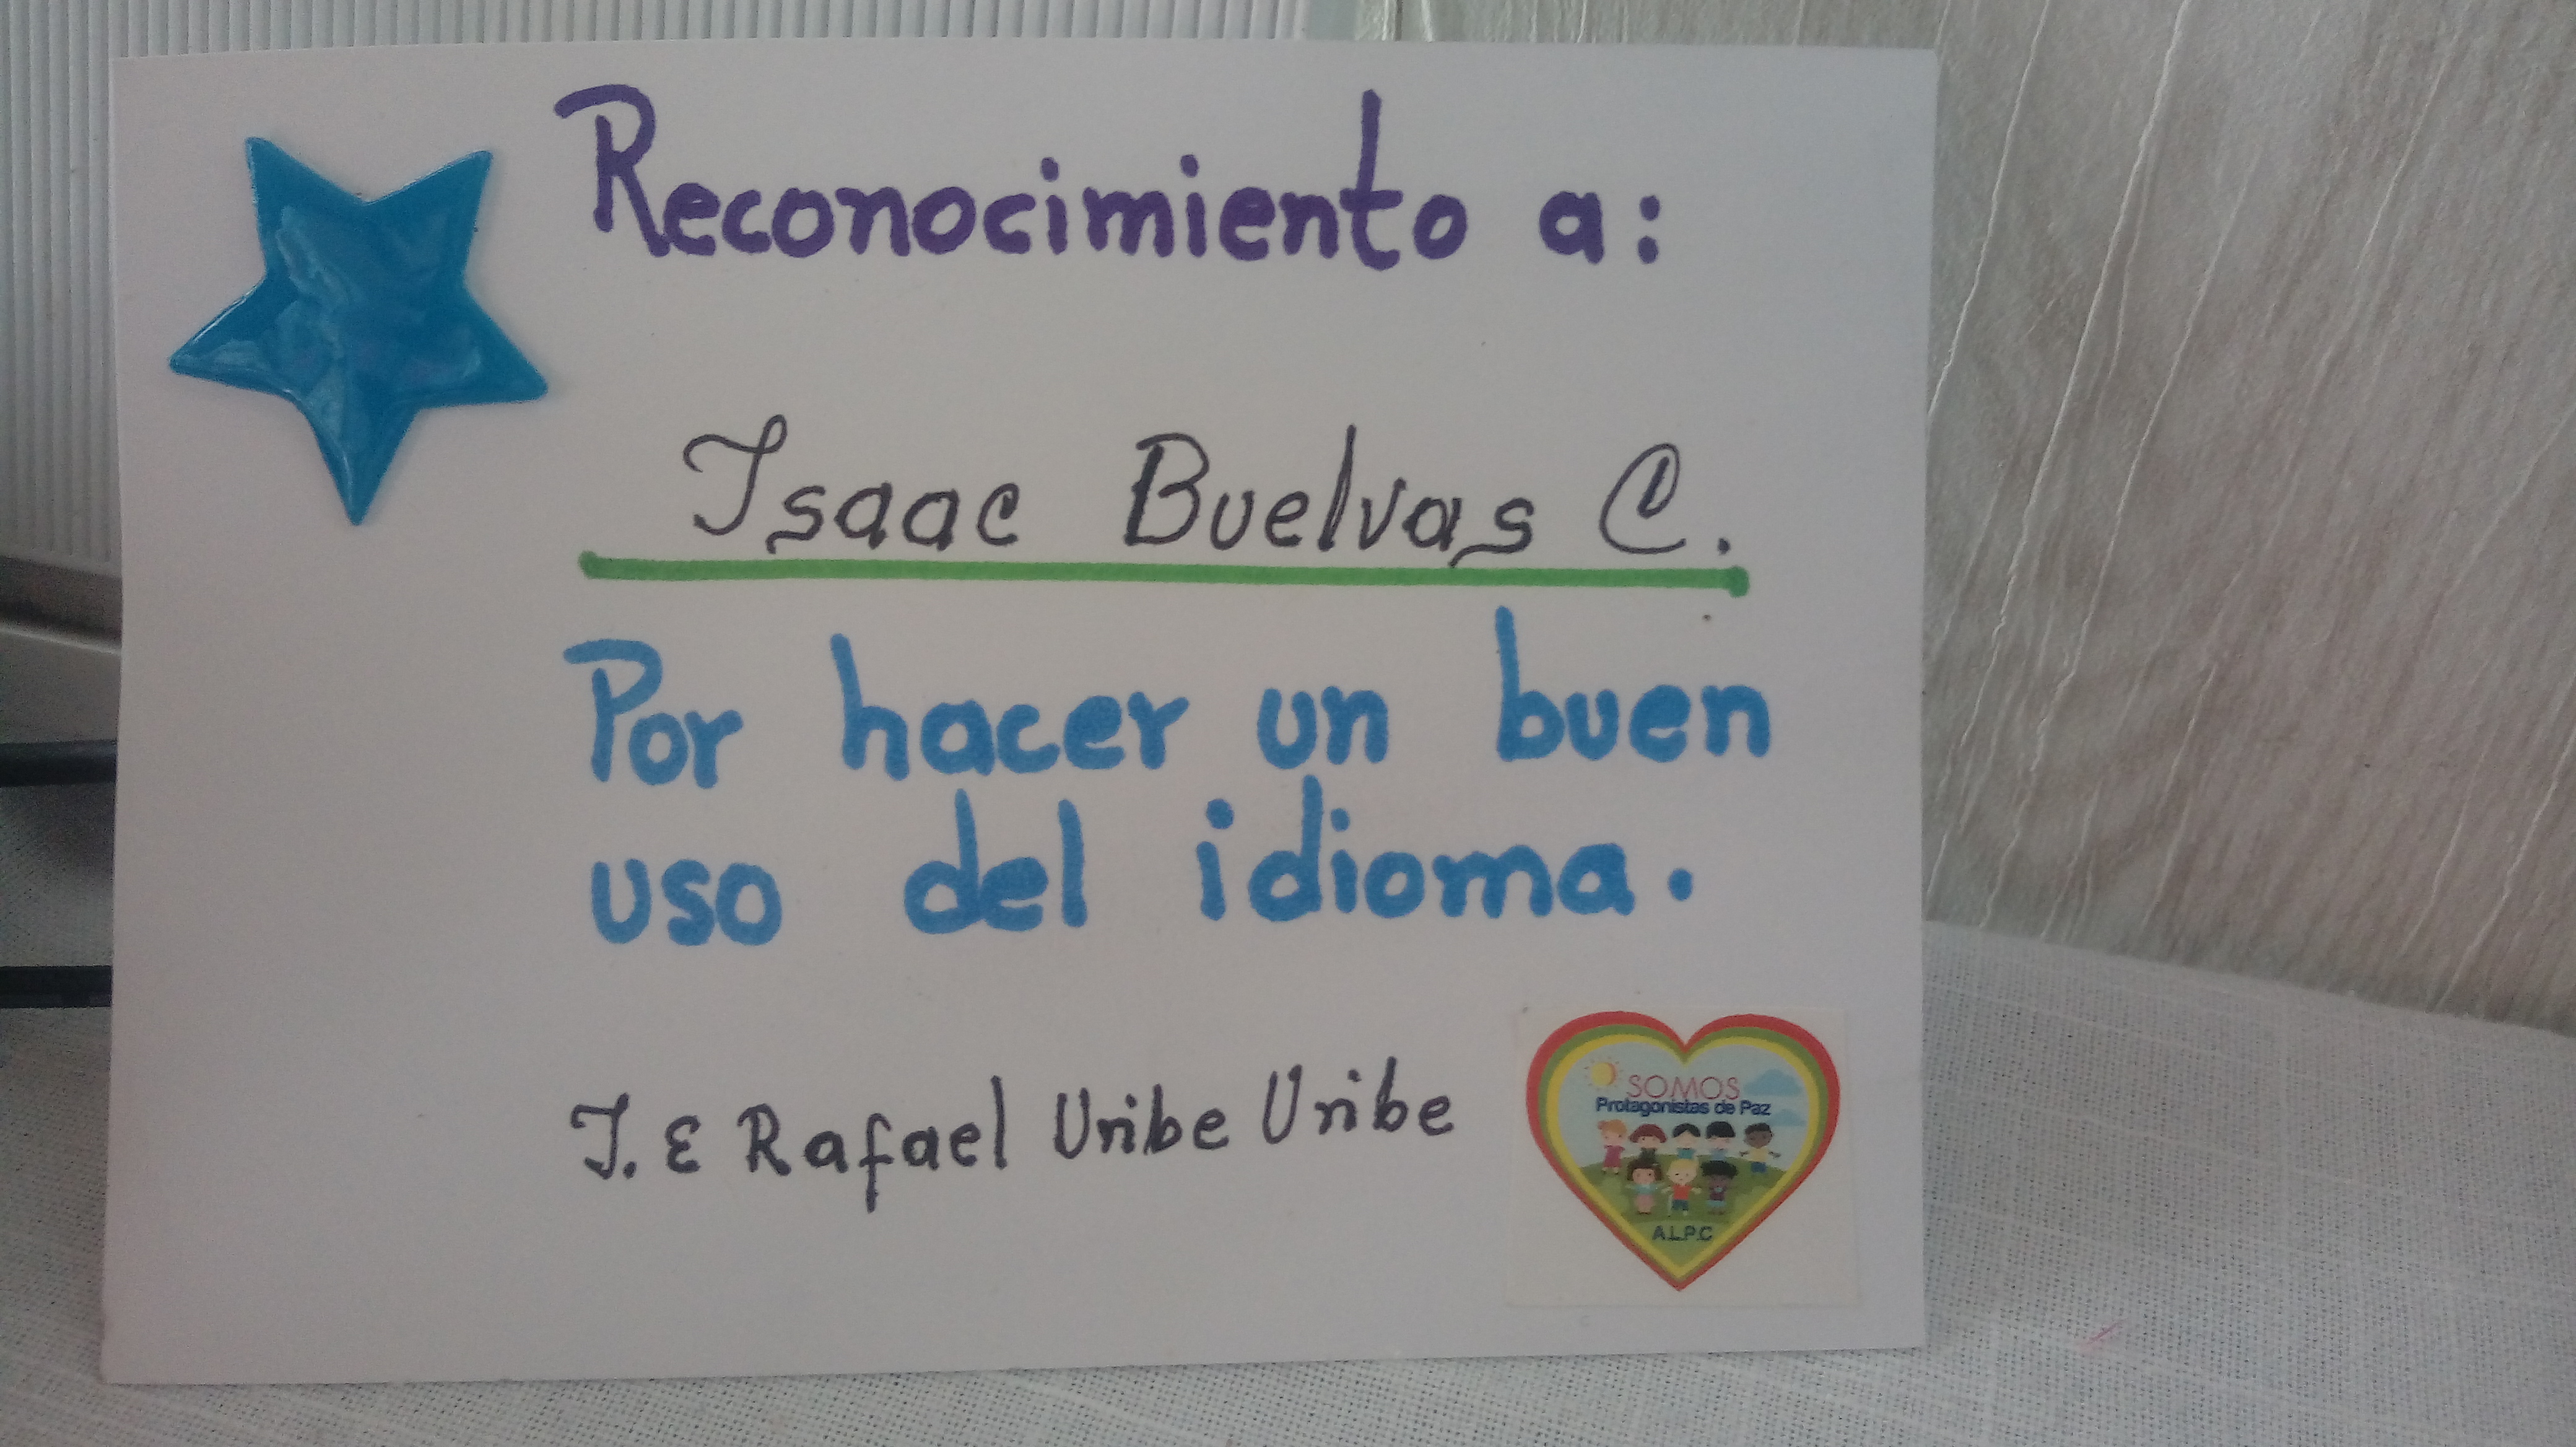 Reconocimiento a:
Isaac Buelvas C.
Por hacer un buen
uso del idioma.
I. E Rafael Uribe Uribe
SOMOS
Protagonistas de Paz
A.L.P.C